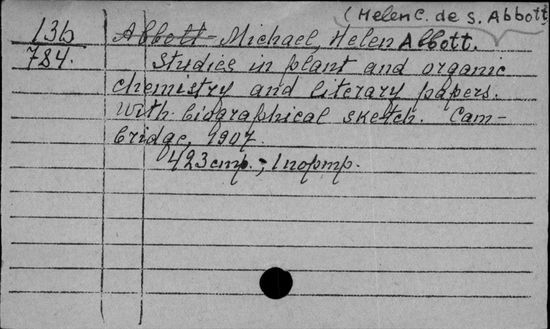 (Helen C. de S. Abbott)
13b Abbott Michael, Helen Abbott.
784. Studies in plant and organic
chemistry and literary papers.
With biographical sketch. Cam-
bridge, 1907.
423 стр.; 1 портр.